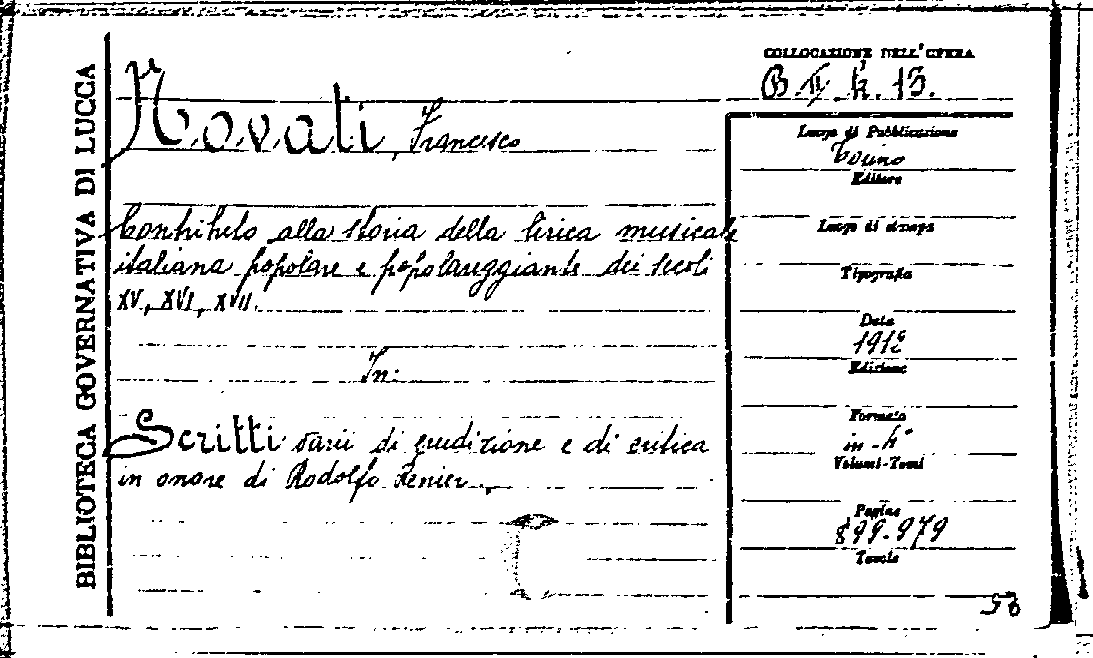 BIBLIOTECA GOVERNATIVA DI LUCCA
COLLOCAZIONE DELL'OPERA
B. II. k. 13.
Novati, Francesco
Contributo alla storia della lirica musicale
italiana popolare e popolareggiante dei secoli
XV, XVI, XVII.
In:
Scritti varii di erudizione e di critica
in onore di Rodolfo Renier.
Luogo di Pubblicazione
Torino
Editore
Luogo di stampa
Tipografia
Data
1912
Edizione
Formato
in-4°
Volumi-Tomi
Pagine
899-979
Tavole